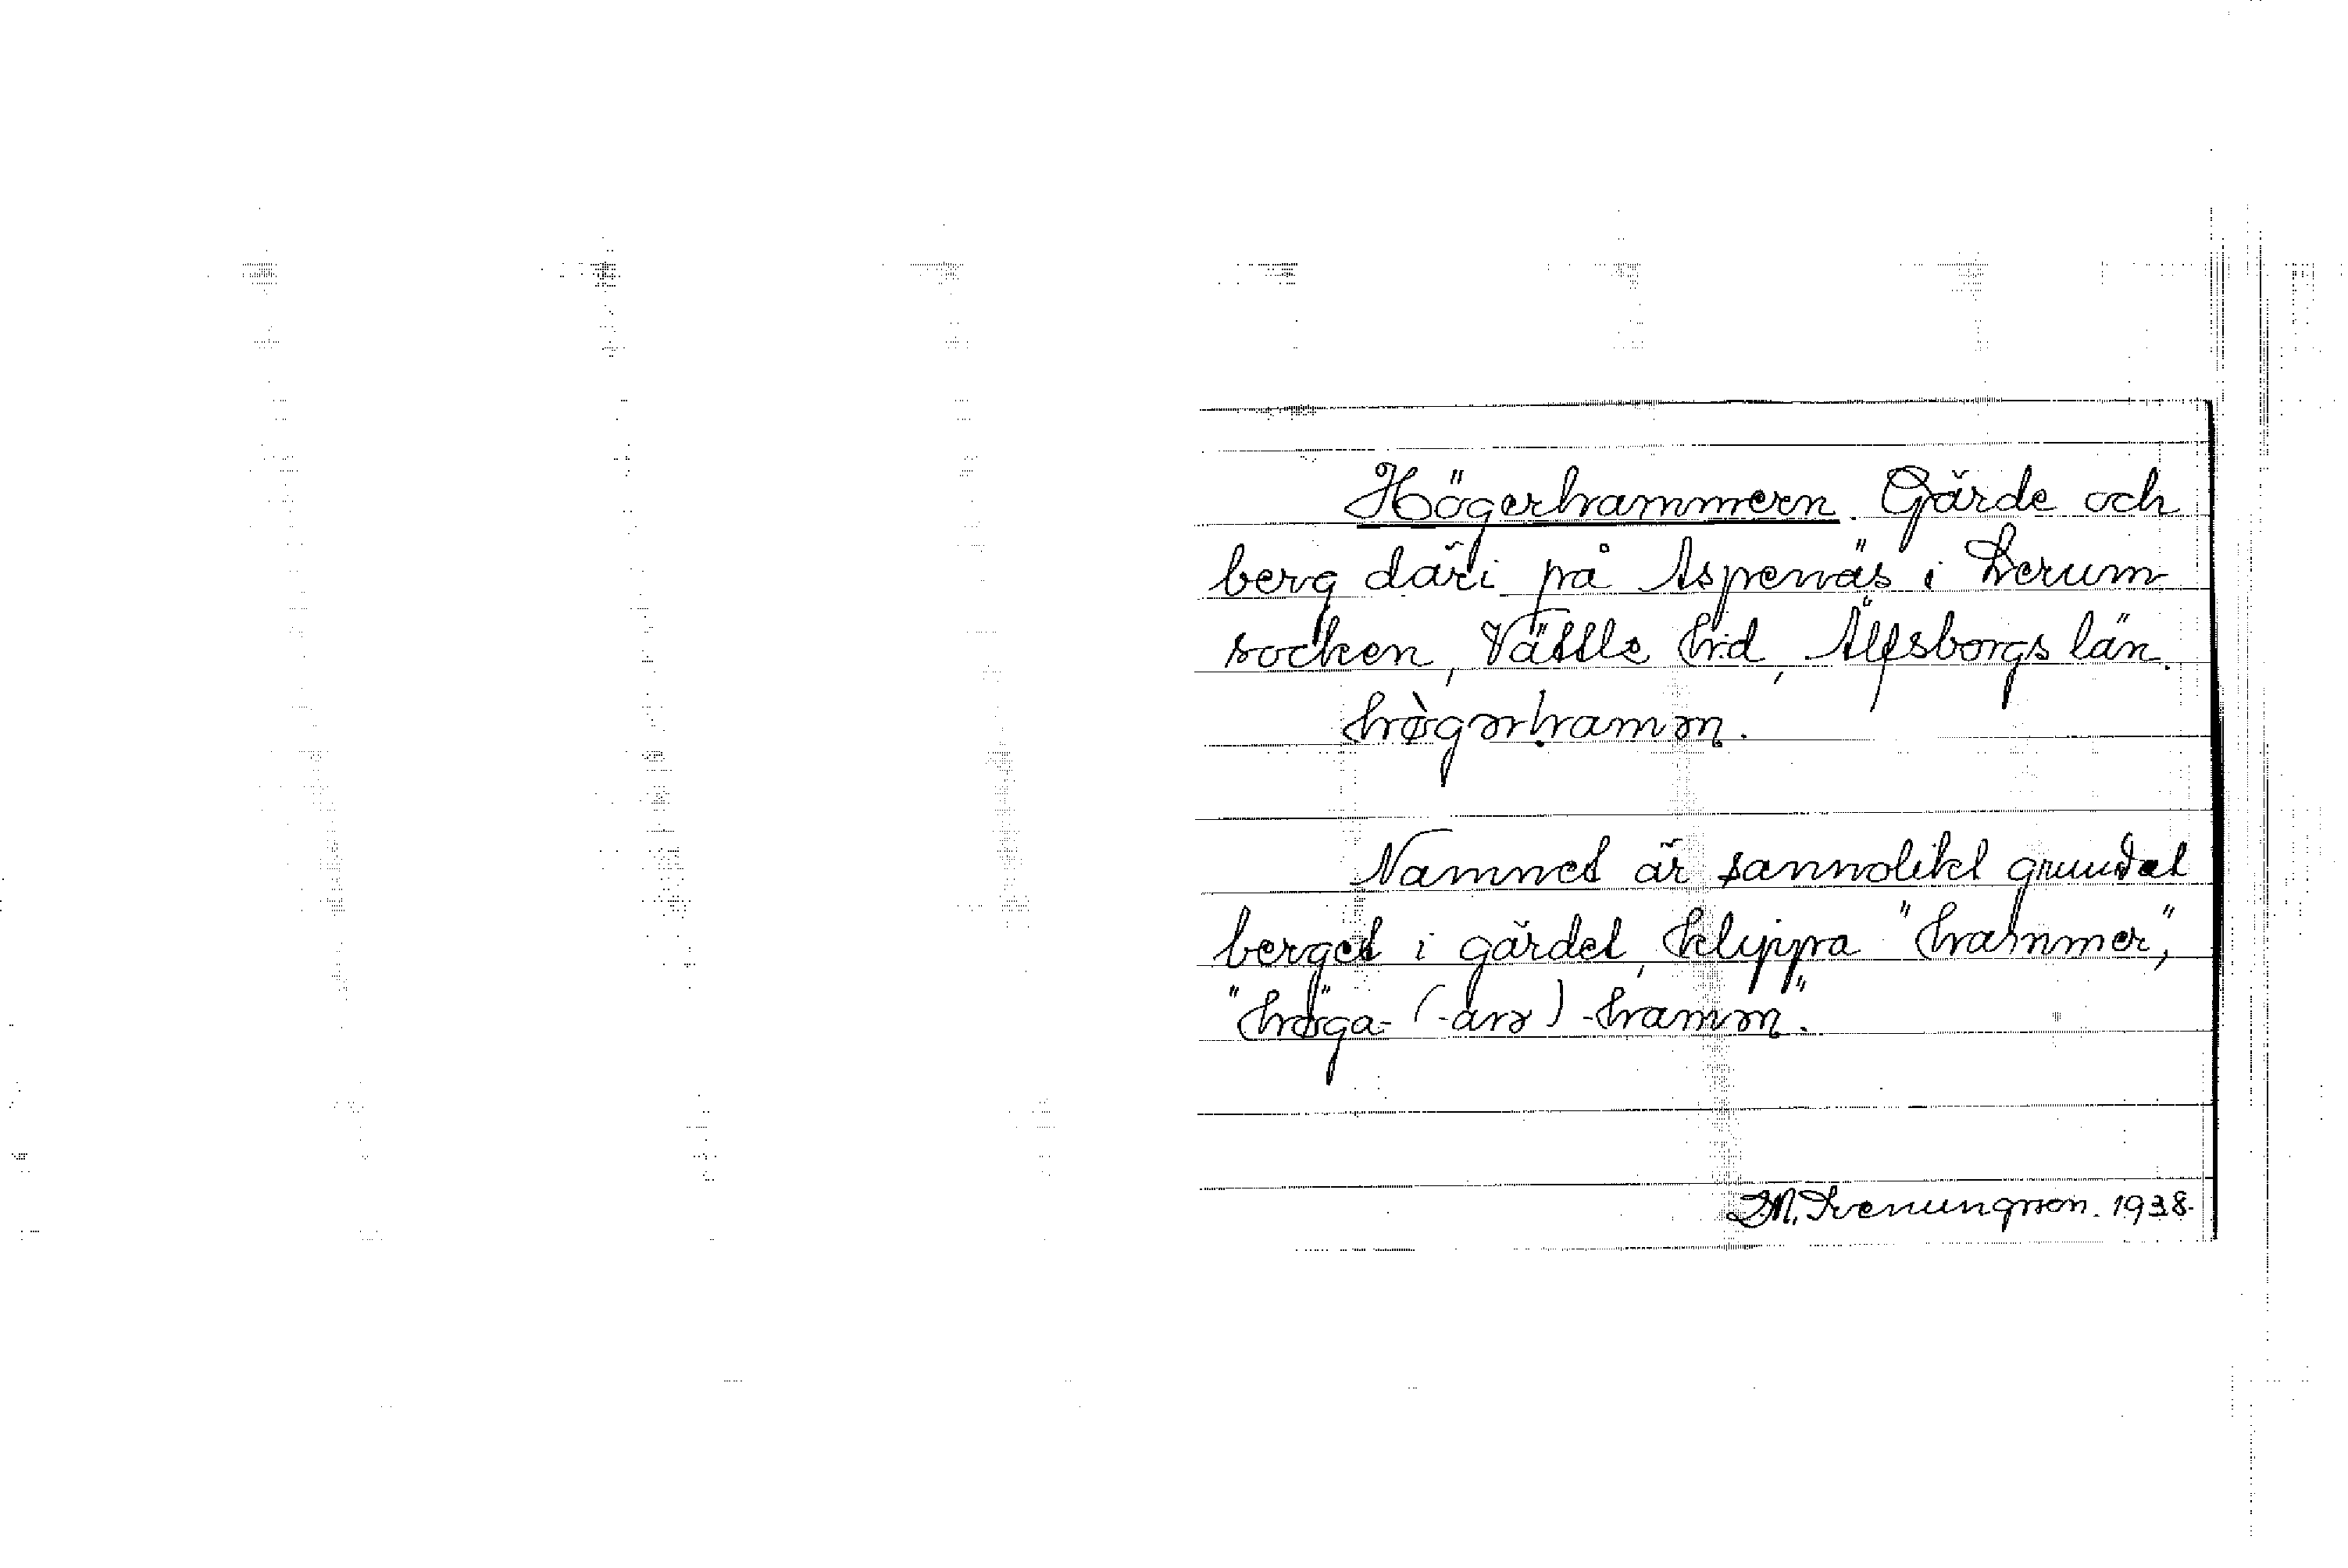 Högerhammern. Gärde och
berg däri på Aspenäs i Lerum
socken, Vättle hrd, Älfsborgs län.
hø̀gərhamən.
Namnet är sannolikt grundat
berget i gärdet, klippa "hammer",
"høga- (-arə) -hamən".
M. Svenungson. 1938.